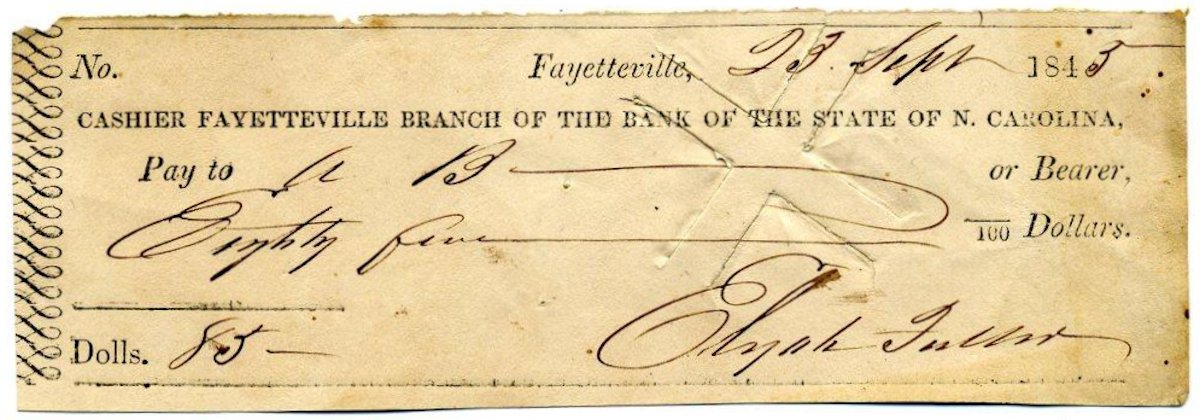 No. Fayetteville, 23. Sept 1845
CASHIER FAYETTEVILLE BRANCH OF THE BANK OF THE STATE OF N. CAROLINA,
Pay to A B or Bearer,
Eighty five /100 Dollars.
Dolls. 85 — Elijah Fuller